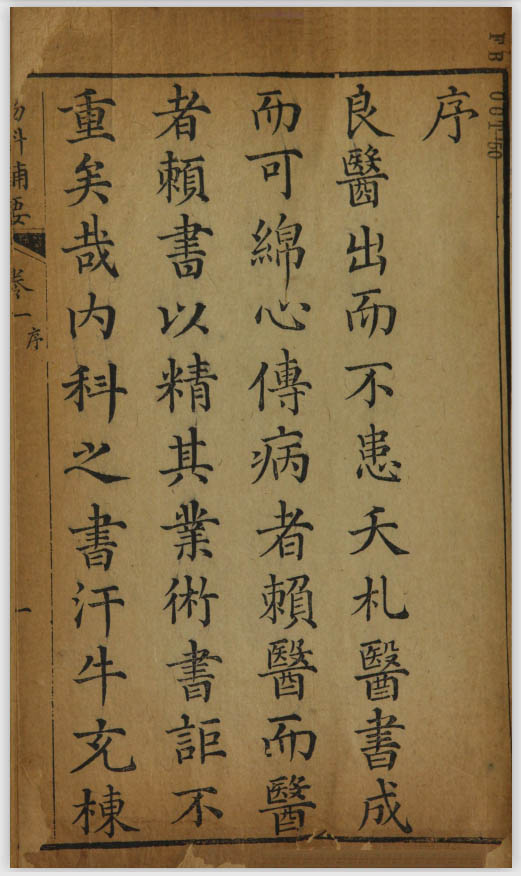 序
良醫出而不患夭札醫書成
而可綿心傳病者賴醫而醫
者賴書以精其業術書詎不
重矣哉内科之書汗牛充棟
科 要
卷一
序
一